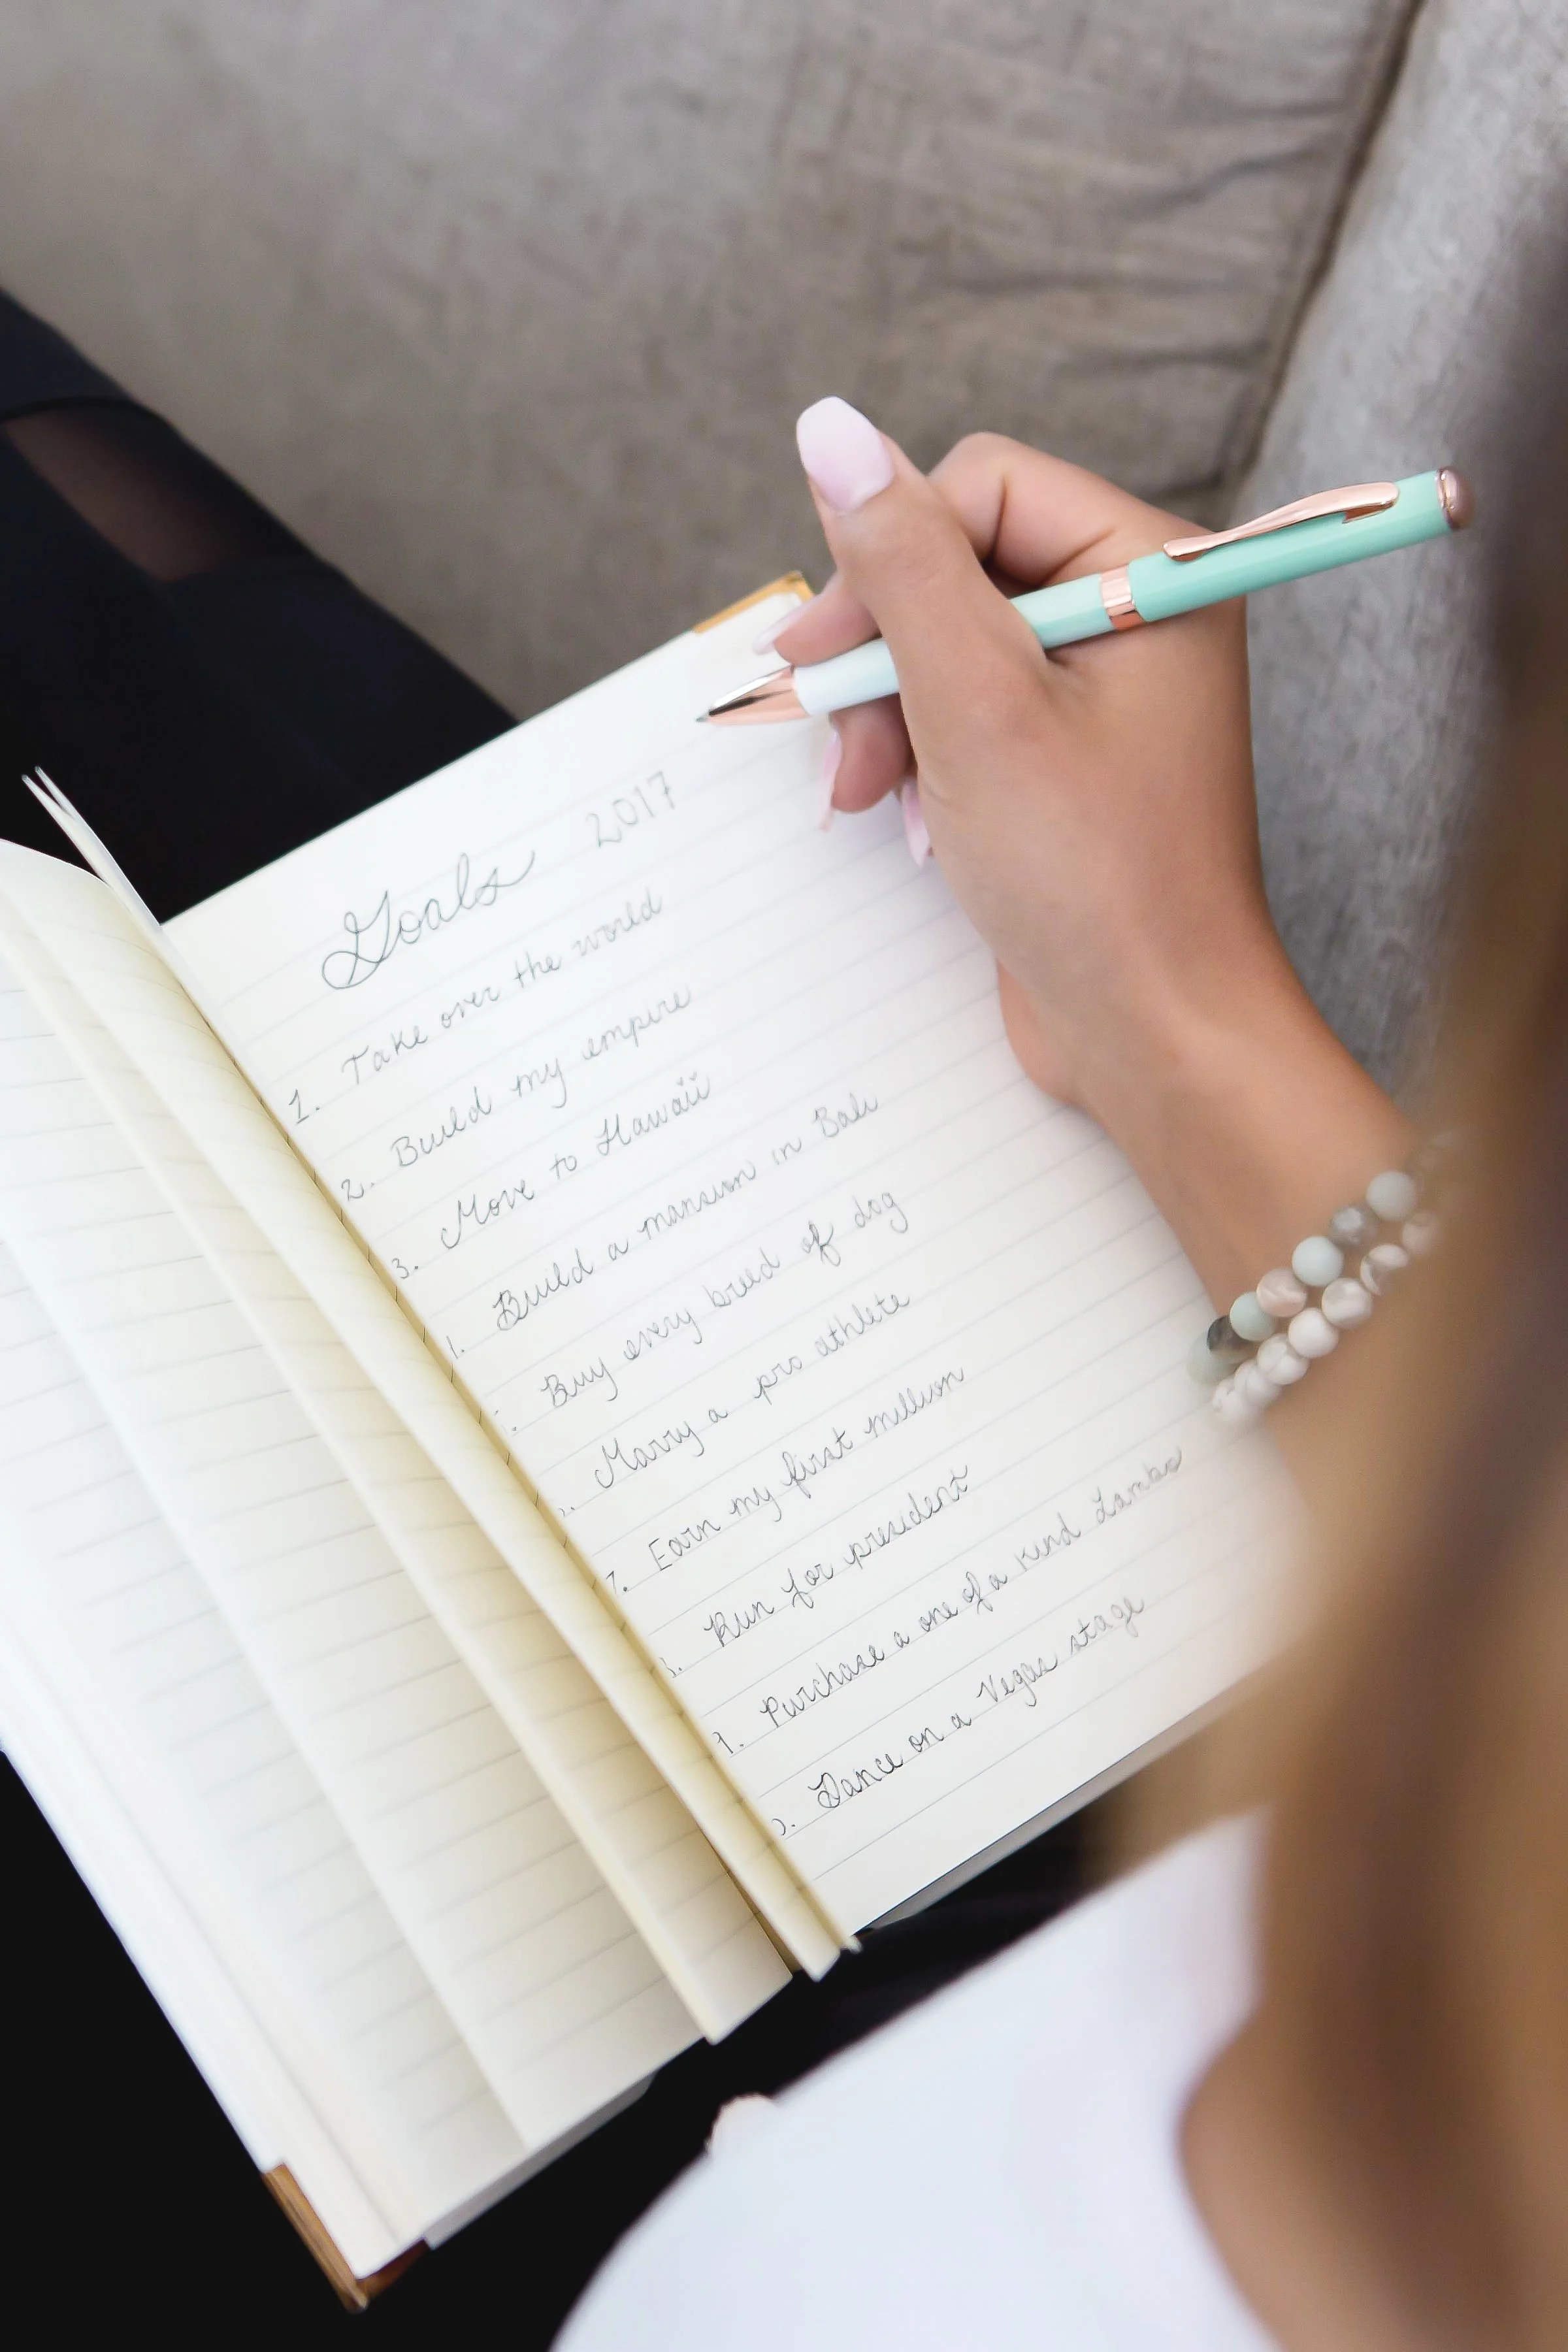 Goals 2017
1. Take over the world
2. Build my empire
3. Move to Hawaii
Build a mansion in Bali
Buy every breed of dog
Marry a pro athlete
7. Earn my first million
Run for president
9. Purchase a one of a kind Lambo
Dance on a Vegas stage